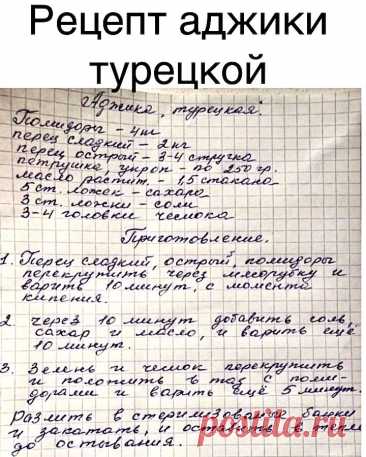 Рецепт аджики
турецкой
Аджика, турецкая.
Помидоры - 4 шт
перец сладкий - 2 кг
перец острый - 3-4 стручка
петрушка, укроп - по 250 гр.
масло растит. - 1,5 стакана
5 ст. ложек - сахара
3 ст. ложки - соли
3-4 головки чеснока
Приготовление.
1. Перец сладкий, острый, помидоры
перекрутить через мясорубку и
варить 10 минут, с момента
кипения.
2. через 10 минут добавить соль,
сахар и масло, и варить ещё
10 минут.
3. Зелень и чеснок перекрутить
и положить в таз с поми-
дорами и варить ещё 5 минут.
Разлить в стерилизованые банки
и закатать, и оставить в тепле
до остывания.
postila.ru